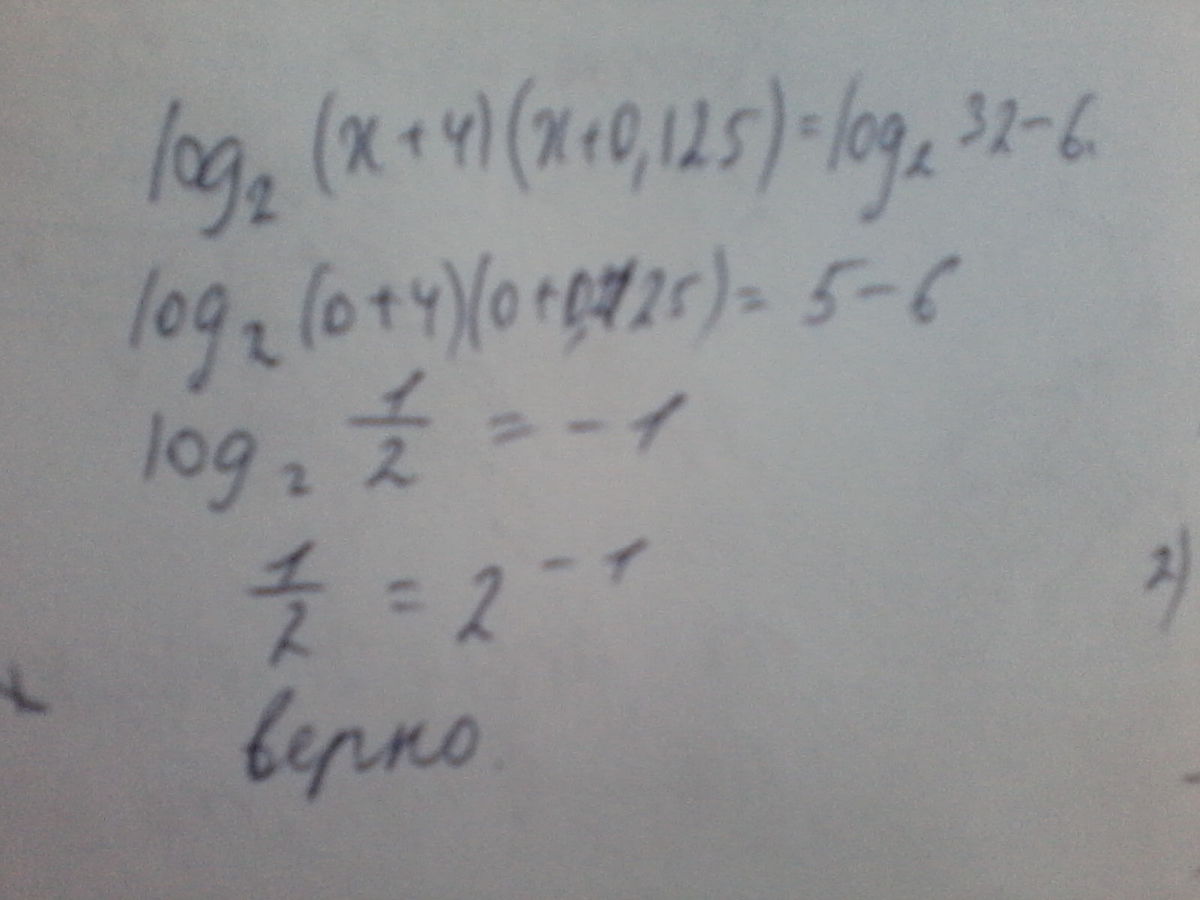 log₂ (x+4)(x+0,125)=log₂ 32-6.
log₂ (0+4)(0+0,125)= 5-6
log₂ 1/2 = -1
1/2 = 2⁻¹
2)
верно.